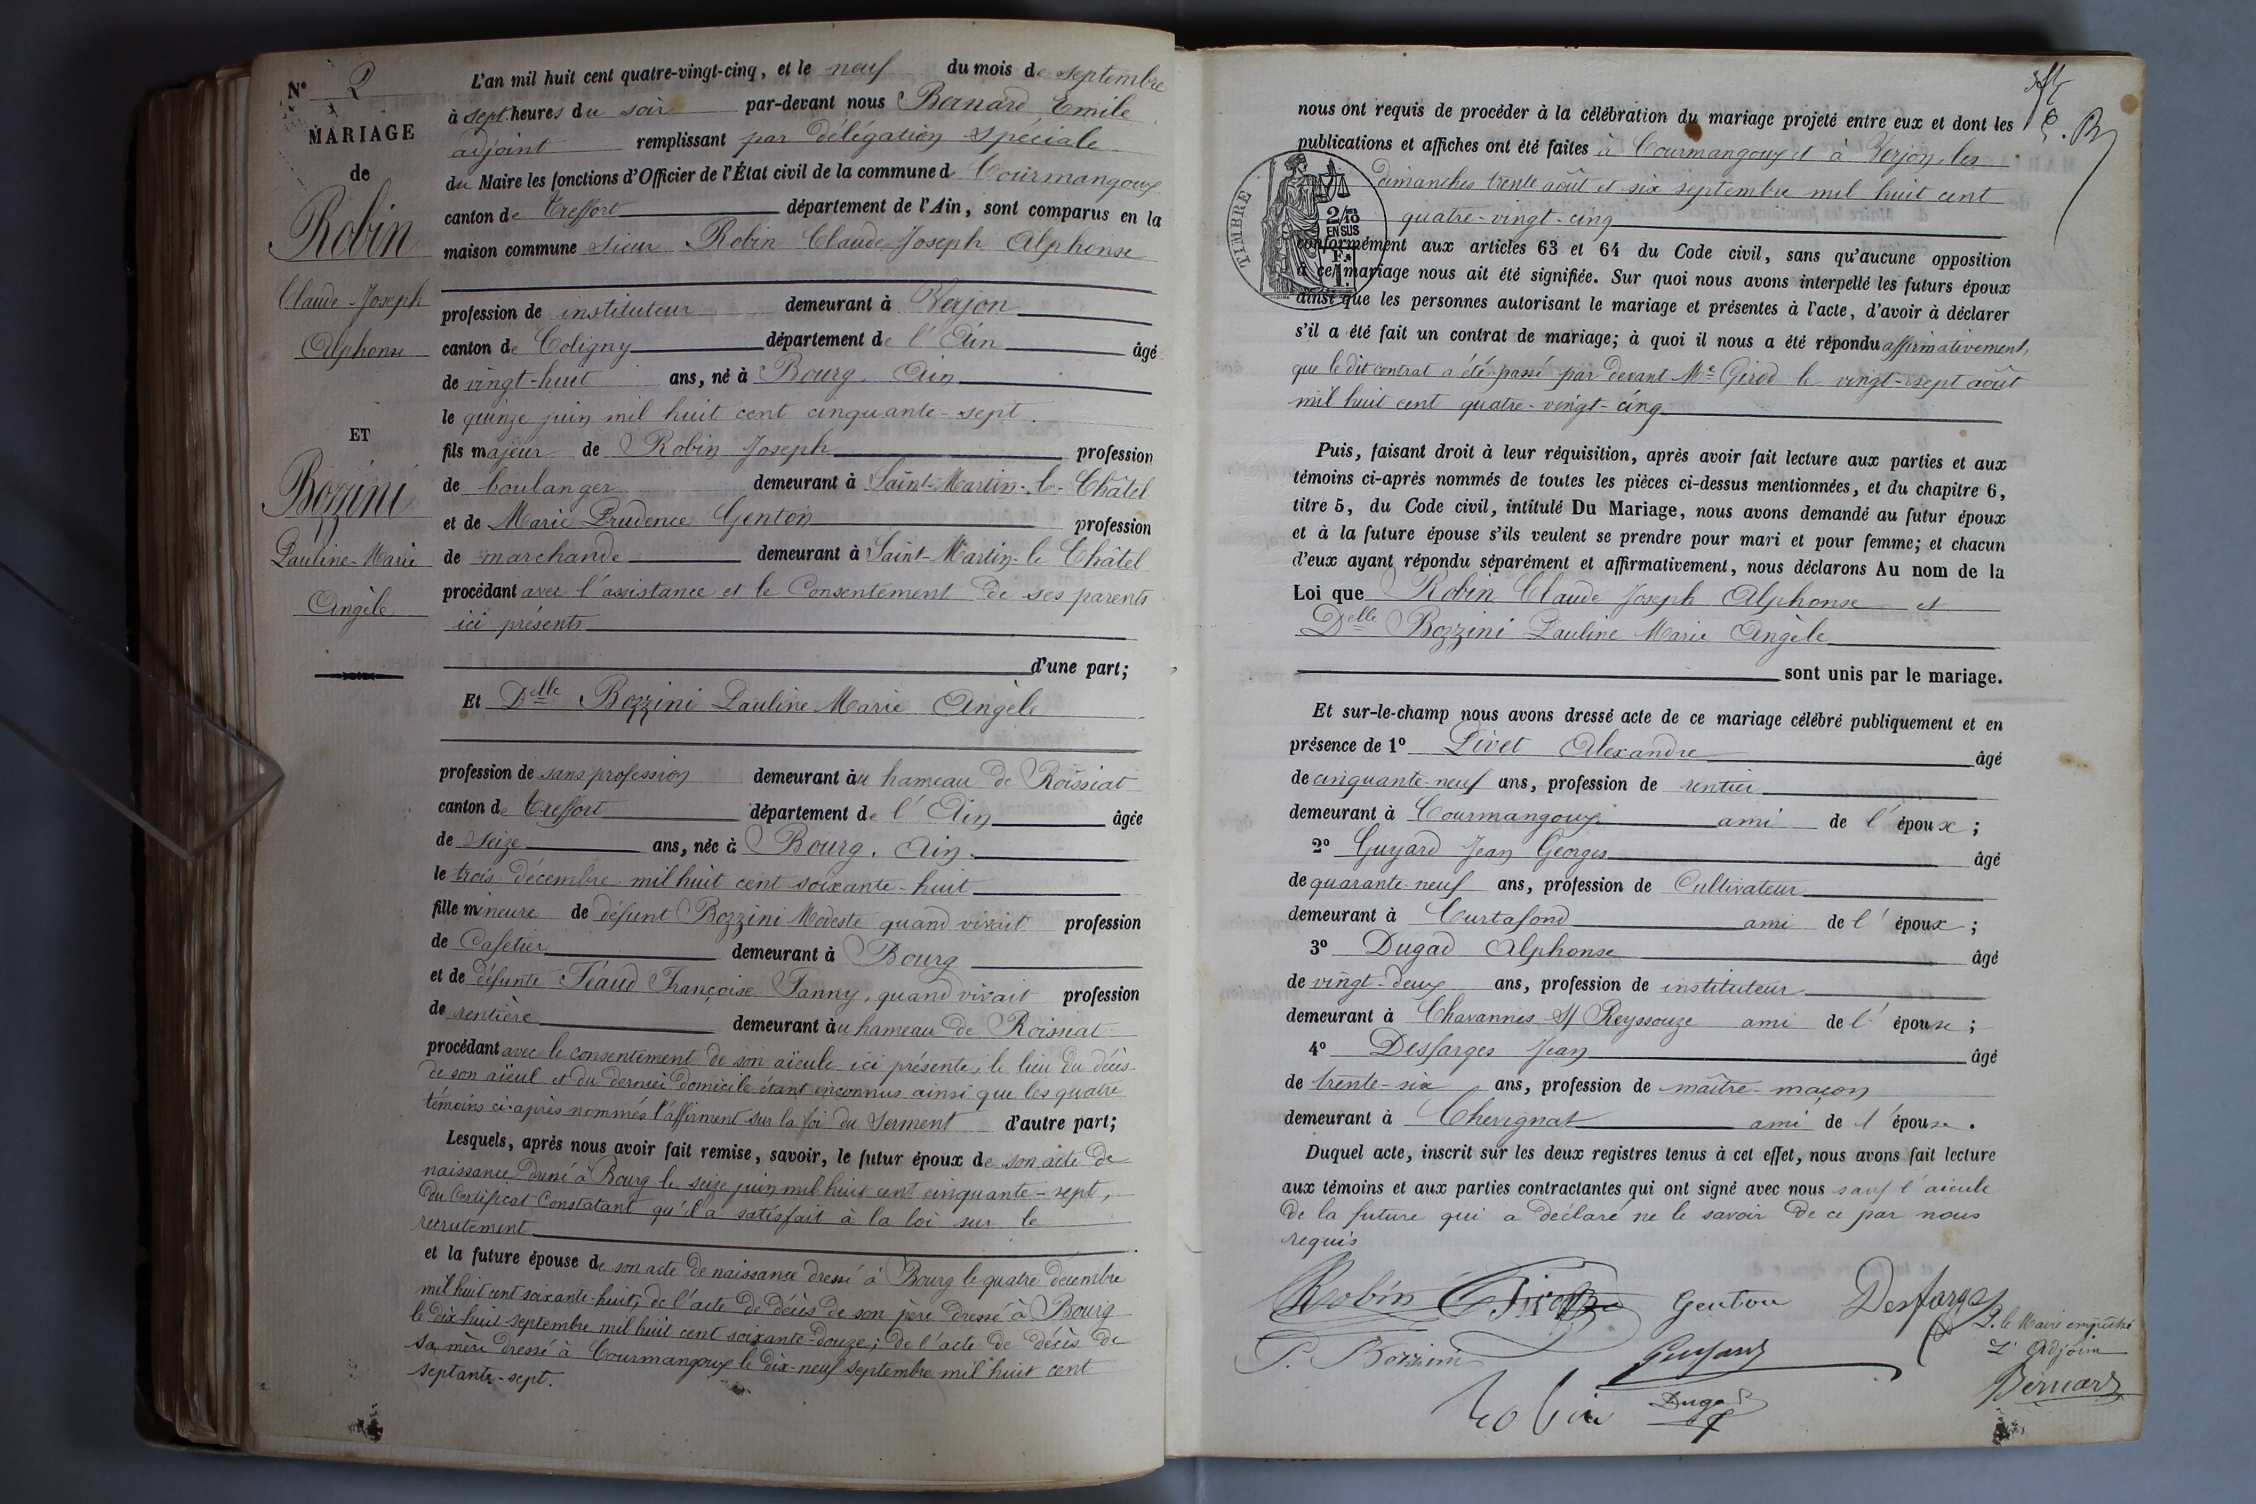 N° 2
MARIAGE
de
Robin
Claude-Joseph
Alphonse
ET
Bozzini
Pauline-Marie
Angèle
L'an mil huit cent quatre-vingt-cinq, et le neuf du mois de septembre
à sept heures du soir par-devant nous Bernard Emile
adjoint remplissant par délégation spéciale
du Maire les fonctions d'Officier de l'État civil de la commune de Courmangoux
canton de Treffort département de l'Ain, sont comparus en la
maison commune sieur Robin Claude Joseph Alphonse
profession de instituteur demeurant à Verjon
canton de Coligny département de l'Ain âgé
de vingt-huit ans, né à Bourg. Ain
le quinze juin mil huit cent cinquante-sept.
fils majeur de Robin Joseph profession
de boulanger demeurant à Saint-Martin-le-Châtel
et de Marie Prudence Genton profession
de marchande demeurant à Saint-Martin-le Châtel
procédant avec l'assistance et le consentement de ses parents
ici présents
d'une part;
Et Delle Bozzini Pauline Marie Angèle
profession de sans profession demeurant au hameau de Roissiat
canton de Treffort département de l'Ain âgée
de seize ans, née à Bourg. Ain.
le trois décembre mil huit cent soixante-huit
fille mineure de défunt Bozzini Modeste quand vivait profession
de Cafetier demeurant à Bourg
et de défunte Féaud Françoise Fanny, quand vivait profession
de rentière demeurant au hameau de Roissiat
procédant avec le consentement de son aïeule ici présente, le lieu du décès
de son aïeul et du dernier domicile étant inconnus ainsi que les quatre
témoins ci-après nommés l'affirment sur la foi du serment d'autre part;
Lesquels, après nous avoir fait remise, savoir, le futur époux de son acte de
naissance dressé à Bourg le seize juin mil huit cent cinquante-sept,
du Certificat Constatant qu'il a satisfait à la loi sur le
recrutement
et la future épouse de son acte de naissance dressé à Bourg le quatre décembre
mil huit cent soixante-huit; de l'acte de décès de son père dressé à Bourg
le dix huit septembre mil huit cent soixante-douze; de l'acte de décès de
sa mère dressé à Courmangoux le dix-neuf septembre mil huit cent
septante-sept.
E. B
nous ont requis de procéder à la célébration du mariage projeté entre eux et dont les
publications et affiches ont été faites à Courmangoux et à Verjon, les
dimanches trente août et six septembre mil huit cent
quatre-vingt-cinq
TIMBRE
2/10
EN SUS
conformément aux articles 63 et 64 du Code civil, sans qu'aucune opposition
à ce mariage nous ait été signifiée. Sur quoi nous avons interpellé les futurs époux
ainsi que les personnes autorisant le mariage et présentes à l'acte, d'avoir à déclarer
s'il a été fait un contrat de mariage; à quoi il nous a été répondu affirmativement,
que le dit contrat a été passé par devant Me Girod le vingt-sept août
mil huit cent quatre-vingt-cinq
Puis, faisant droit à leur réquisition, après avoir fait lecture aux parties et aux
témoins ci-après nommés de toutes les pièces ci-dessus mentionnées, et du chapitre 6,
titre 5, du Code civil, intitulé Du Mariage, nous avons demandé au futur époux
et à la future épouse s'ils veulent se prendre pour mari et pour femme; et chacun
d'eux ayant répondu séparément et affirmativement, nous déclarons Au nom de la
Loi que Robin Claude Joseph Alphonse et
Delle Bozzini Pauline Marie Angèle
sont unis par le mariage.
Et sur-le-champ nous avons dressé acte de ce mariage célébré publiquement et en
présence de 1° Pivet Alexandre âgé
de cinquante-neuf ans, profession de rentier
demeurant à Courmangoux ami de l'époux;
2° Guyard Jean Georges âgé
de quarante-neuf ans, profession de Cultivateur
demeurant à Curtafond ami de l'époux;
3° Dugad Alphonse âgé
de vingt-deux ans, profession de instituteur
demeurant à Chavannes S/ Reyssouze ami de l'épouse;
4° Desfarges Jean âgé
de trente-six ans, profession de maître-maçon
demeurant à Chevignat ami de l'épouse.
Duquel acte, inscrit sur les deux registres tenus à cet effet, nous avons fait lecture
aux témoins et aux parties contractantes qui ont signé avec nous sauf l'aïeule
de la future qui a déclaré ne le savoir de ce par nous
requis
Robin Genton Desfarges
P. le Maire empêché
L'Adjoint
P. Bozzini Guyard
Bernard
Robin Dugad